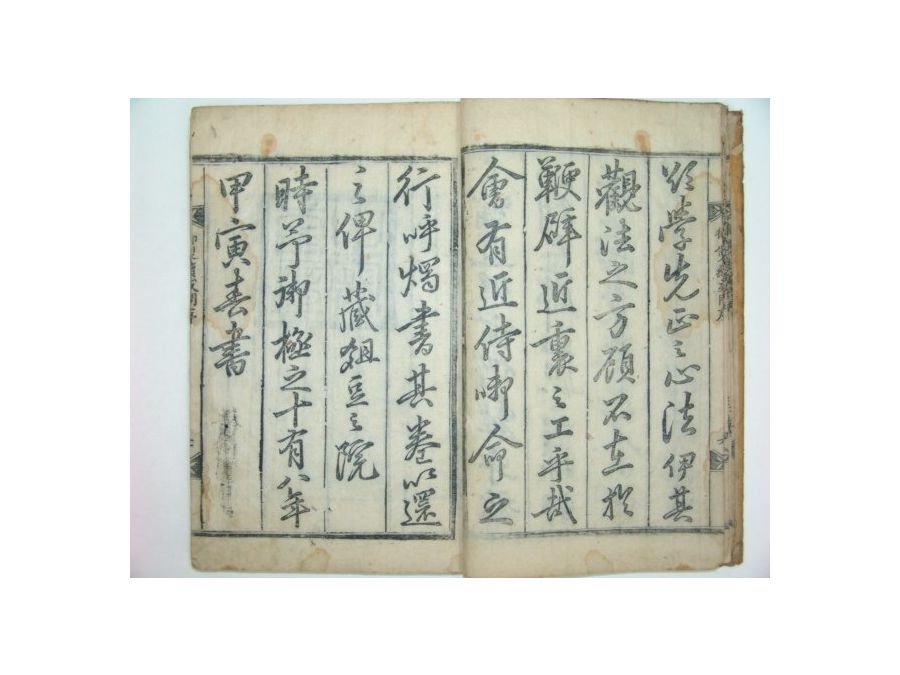 欲學先正之心法伊其
觀法之方顧不在於
鞭辟近裏之工乎哉
會有近侍啣命之
行呼燭書其卷以還
之俾藏俎豆之院
時予御極之十有八年
甲寅春書